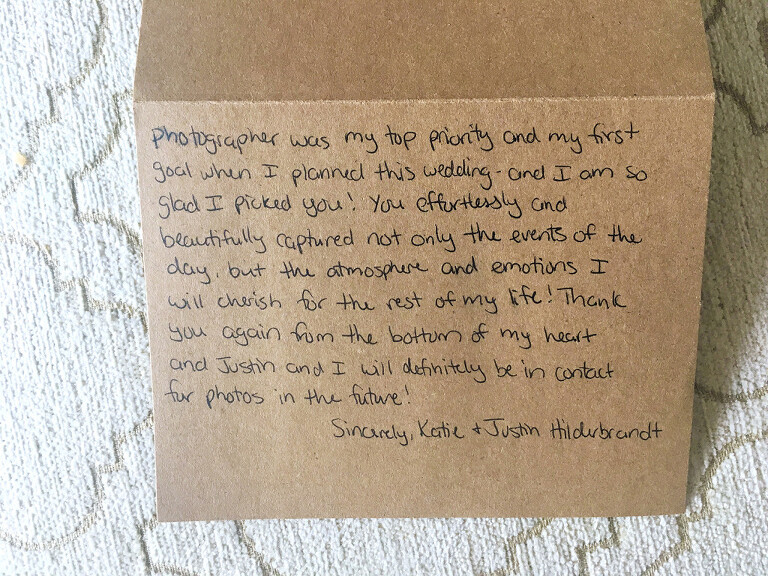 photographer was my top priority and my first
goal when I planned this wedding - and I am so
glad I picked you! You effortlessly and
beautifully captured not only the events of the
day, but the atmosphere and emotions I
will cherish for the rest of my life! Thank
you again from the bottom of my heart
and Justin and I will definitely be in contact
for photos in the future!
Sincerely, Katie + Justin Hilderbrandt